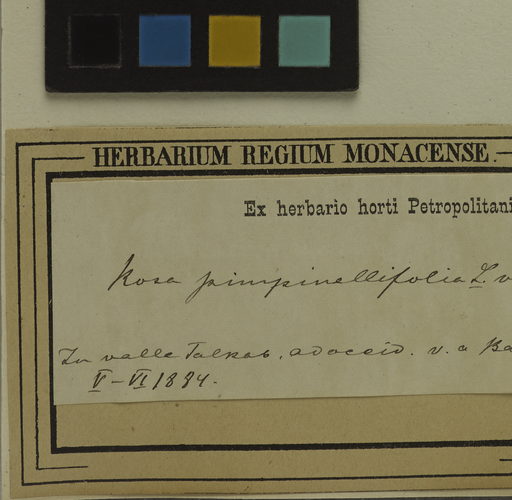 HERBARIUM REGIUM MONACENSE.
Ex herbario horti Petropolitani
Rosa pimpinellifolia L. v
In valle Talkas, ad occid. v. a Ba
V–VI 1884.